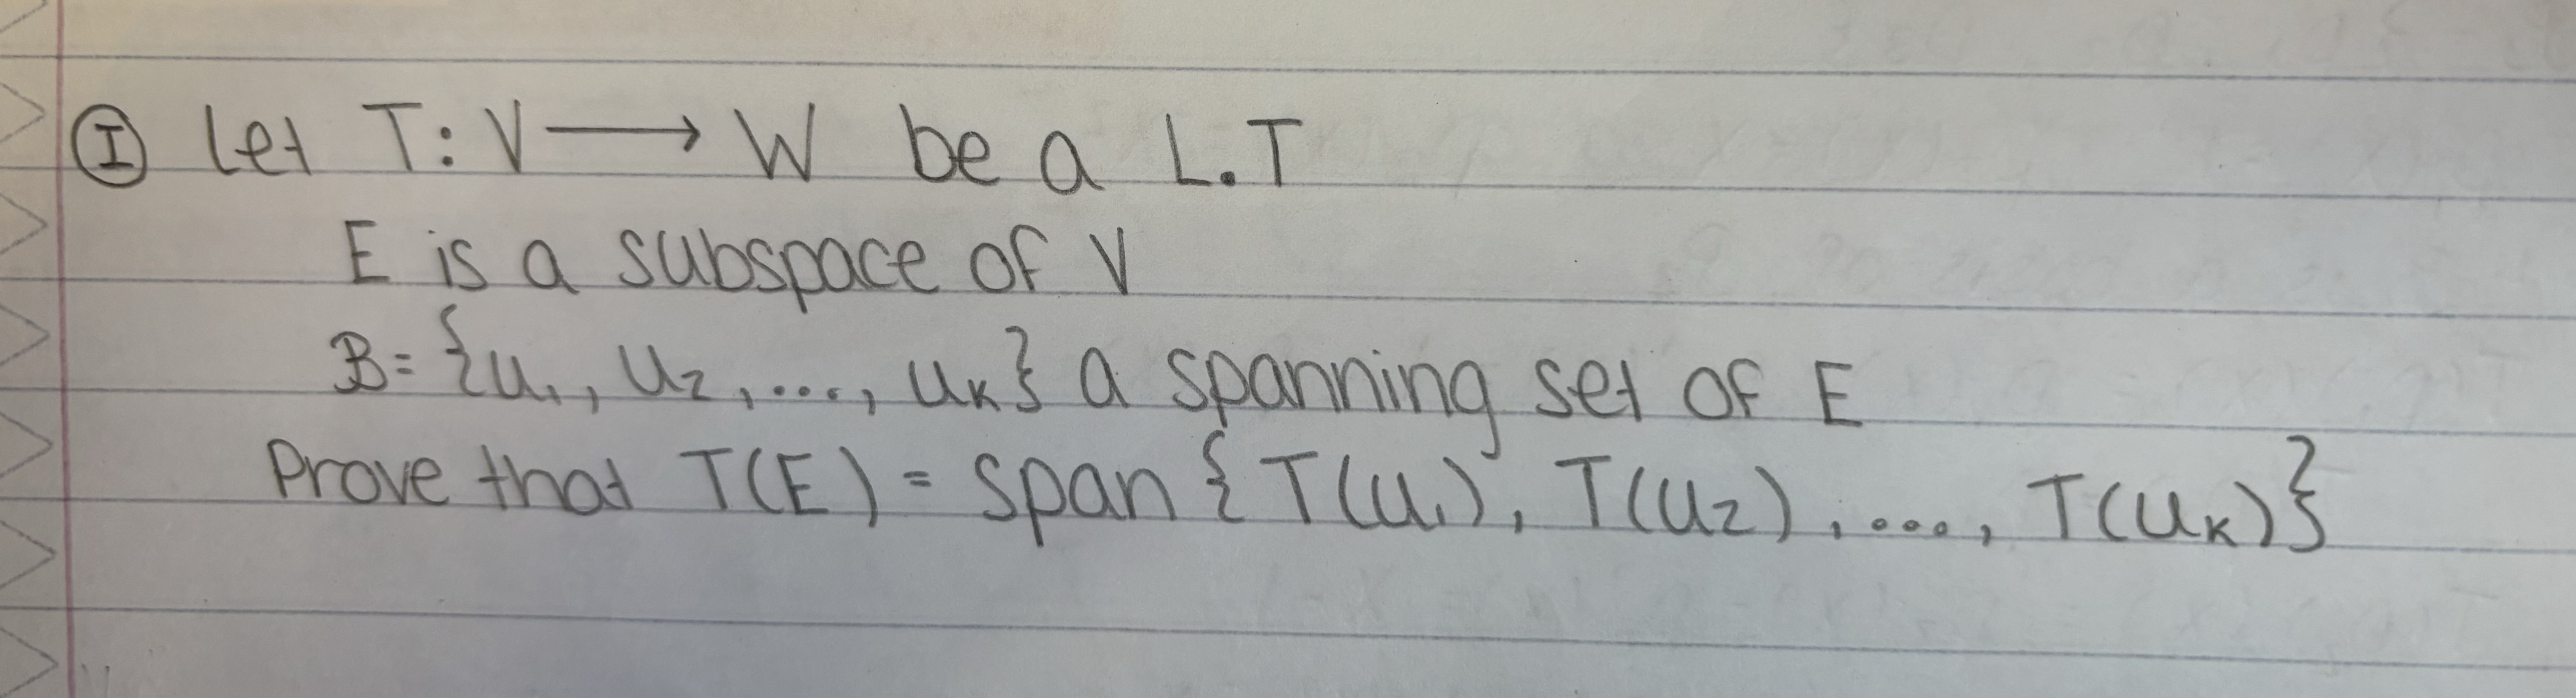 ① Let T: V ⟶ W be a L.T
E is a subspace of V
B = {u₁, u₂, ..., uₖ} a spanning set of E
Prove that T(E) = span {T(u₁), T(u₂), ..., T(uₖ)}